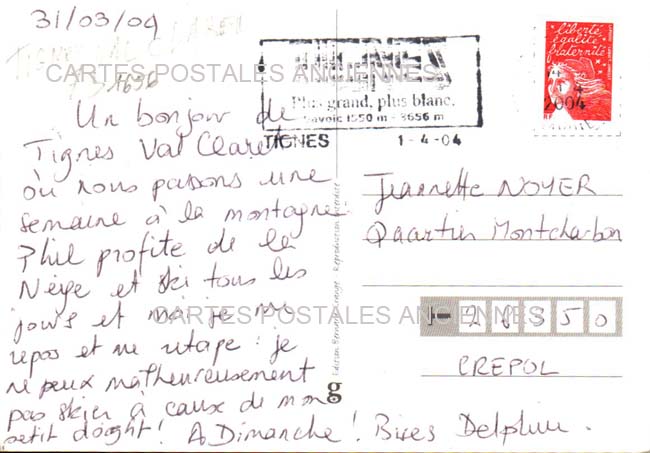 31/03/04
TIGNES
Plus grand, plus blanc.
Savoie 1550 m - 3656 m
TIGNES 1-4-04
liberté
égalité
fraternité
2004
CARTES POSTALES ANCIENNES
Un bonjour de
Tignes Val Claret
où nous passons une
semaine à la montagne
Phil profite de la
Neige et ski tous les
jours et moi je me
repos et me retape : je
ne peux malheureusement
pas skier à cause de mon
petit doight! A Dimanche! Bises Delphine.
Jeannette NOYER
Quartier Montcharbon
CARTES POSTALES ANCIENNES
F-26350
CREPOL